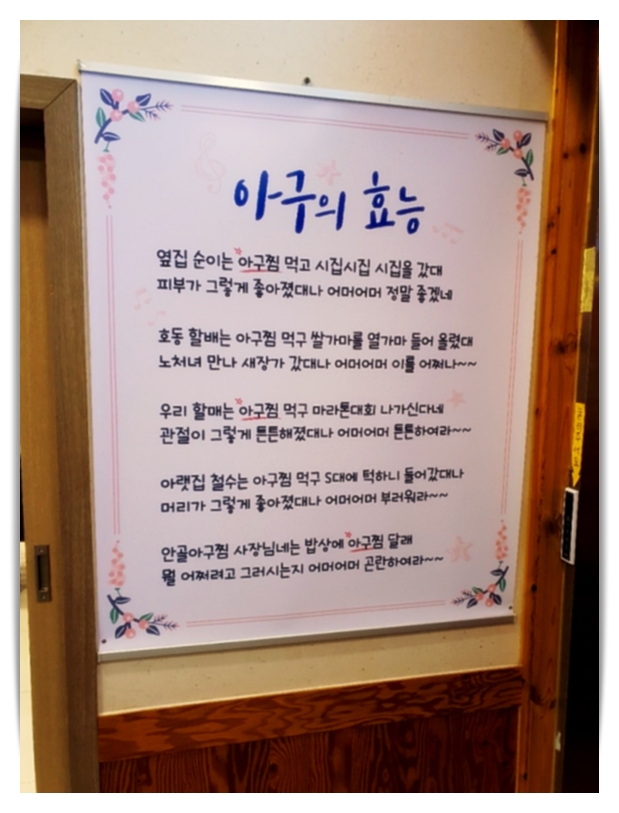 아구의 효능
옆집 순이는 아구찜 먹고 시집시집 시집을 갔대
피부가 그렇게 좋아졌대나 어머어머 정말 좋겠네
호동 할배는 아구찜 먹구 쌀가마를 열가마 들어 올렸대
노처녀 만나 새장가 갔대나 어머어머 이를 어쩌나~~
우리 할매는 아구찜 먹구 마라톤대회 나가신다네
관절이 그렇게 튼튼해졌대나 어머어머 튼튼하여라~~
아랫집 철수는 아구찜 먹구 S대에 턱하니 들어갔대나
머리가 그렇게 좋아졌대나 어머어머 부러워라~~
안골아구찜 사장님네는 밥상에 아구찜 달래
뭘 어쩌려고 그러시는지 어머어머 곤란하여라~~